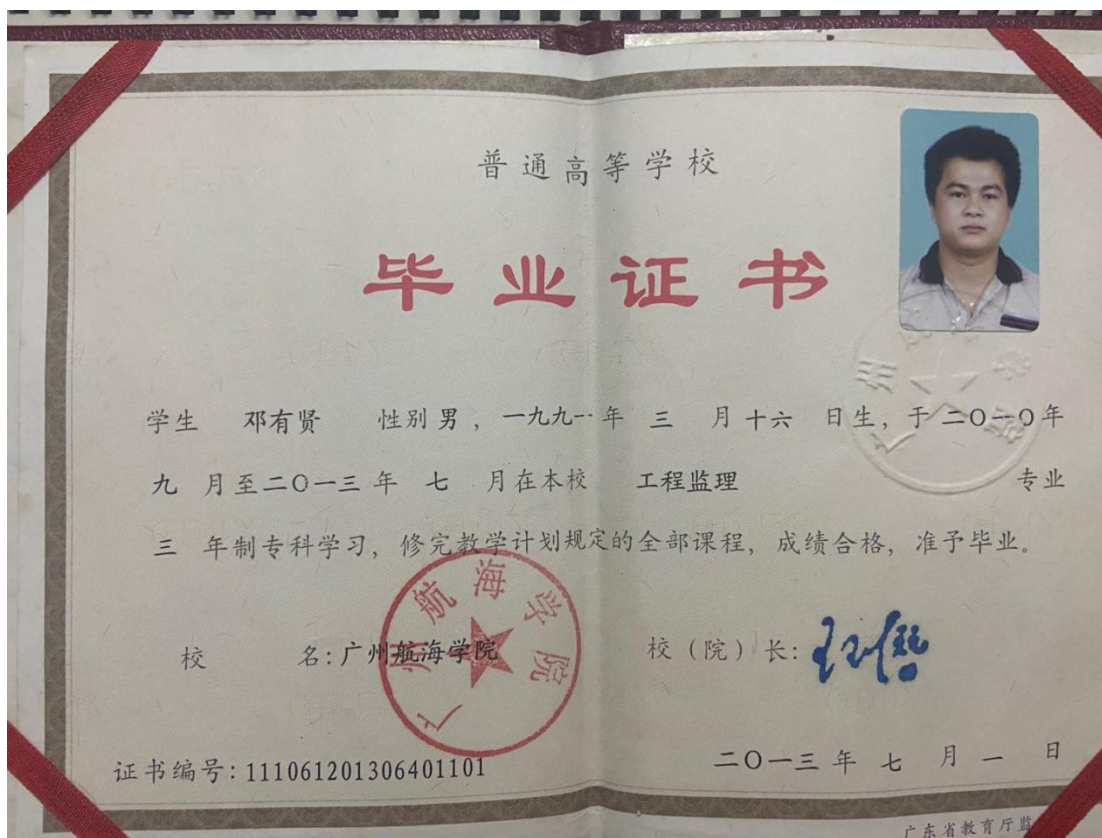 普通高等学校
毕业证书
学生 邓有贤 性别 男 ，一九九一 年 三 月 十六 日生，于 二〇一〇年
九 月至 二〇一三 年 七 月在本校 工程监理 专业
三 年制专科学习，修完教学计划规定的全部课程，成绩合格，准予毕业。
校 名：广州航海学院
广州航海学院
校（院）长：
证书编号：111061201306401101
二〇一三 年 七 月 一 日
广东省教育厅监